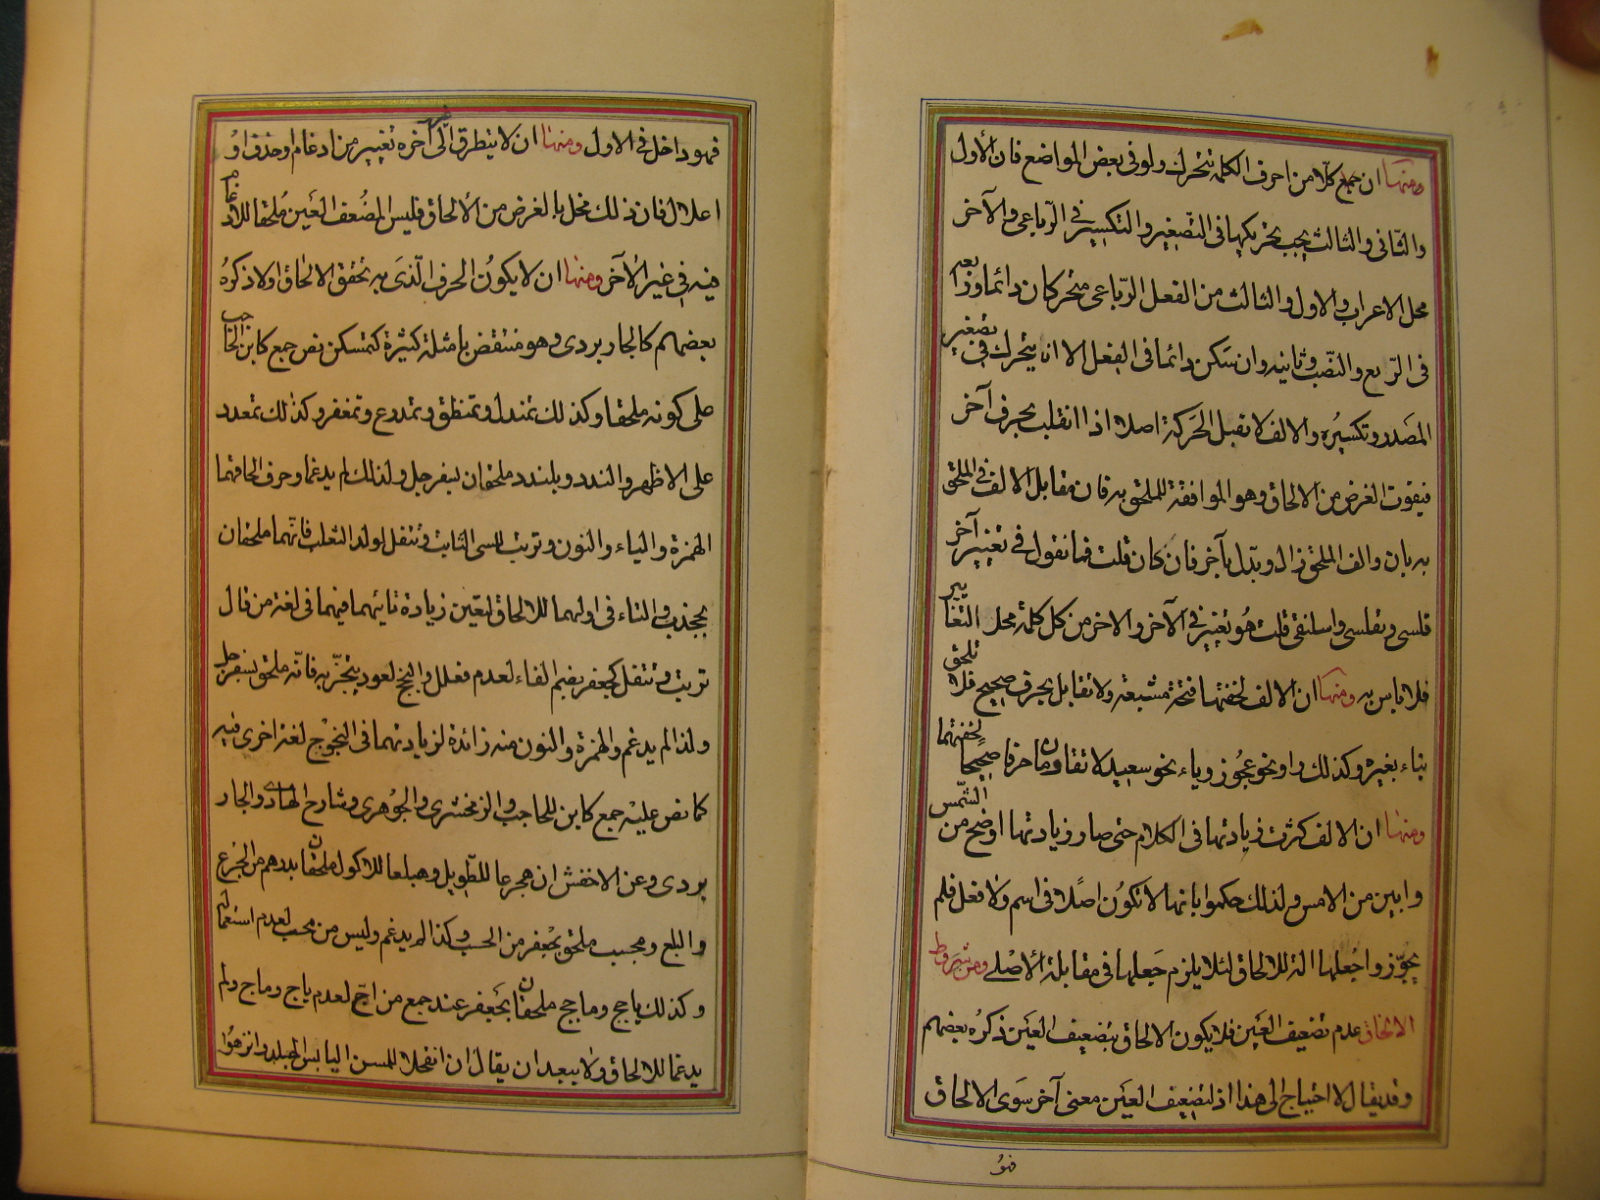 ومنها ان جمع كلا من احرف الكلمة يتحرك ولو في بعض المواضع فان الأول
والثاني والثالث يجب تحريكها في التصغير والتكسير في الرباعي والآخر
محل الاعراب والاول والثالث من الفعل الرباعي متحركان دائما ورابعه
في الرفع والنصب وثانيه وان سكن دائما في الفعل الا انه يتحرك في تصغير
المصدر وتكسيره والالف لا تقبل الحركة اصلا اذا انقلب بحرف آخر
فيفوت الغرض من الالحاق وهو الموافقة للملحق به فان مقابل الالف في الملحق
به بان والف الملحق زال وبدل بآخر فان قلت فما تقول في تغيير آخر
قلسى وتقلسى واسلنقى قلت هو تغيير في الآخر والاخر من كل كلمة محل التغايير
فلا باس به ومنها ان الالف لخفتها فتحة مشبعة ولا تقابل بحرف صحيح فلا تلحق
بناء بغيره وكذلك واو نحو عجوز وياء نحو سعيد لا تقاومان حرفا صحيحا لخفتهما
ومنها ان الالف كثرت زيادتها في الكلام حتى صار زيادتها اوضح من الشمس
وابين من الامس ولذلك حكموا بانها لا تكون اصلا في اسم ولا فعل فلم
يجوّزوا جعلها الة للالحاق لئلا يلزم جعلها في مقابلة الأصلي ومن شروط
الالحاق عدم تضعيف العين فلا يكون الالحاق بتضعيف العين ذكره بعضهم
وقد يقال لا احتياج الى هذا اذ لتضعيف العين معنى آخر سوى الالحاق
فهو
فهو داخل في الاول ومنها ان لا يتطرق الى آخره تغيير من ادغام او حذف او
اعلال فان ذلك مخل بالغرض من الالحاق فليس المضعف العين ملحقا للادغام
فيه في غير الآخر ومنها ان لا يكون الحرف الذي به تحقق الالحاق اولا ذكره
بعضهم كالجاربردي وهو منتقض بامثلة كثيرة كتمسكن نص جمع كابن الحاجب
على كونه ملحقا وكذلك تمندل وتمنطق وتمدرع وتمغفر وكذلك تمعدد
على الاظهر والندد ويلندد ملحقان بسفرجل ولذلك لم يدغما وحرف الحاقهما
الهمزة والياء والنون وترتب للشئ الثابت وتتفل لولد الثعلب فانهما ملحقان
بجخدب والتاء في اولهما للالحاق لتعين زيادة تائيهما فيهما في لغة من قال
ترتب وتتفل كجعفر بضم الفاء لعدم فعلل والنج لعود يتبخر به فانه ملحق بسفرجل
ولذا لم يدغم والهمزة والنون منه زائدة لزيادتهما في النجوج لغة اخرى فيه
كما نص عليه جمع كابن الحاجب والزمخشري والجوهري وشارح الهادي والجار
بردي وعن الاخفش ان هجرعا للطويل وهبلعا للاكول ملحقان بدرهم من الجرع
والبلع ومحبب ملحق بجعفر من الحب وكذا لم يدغم وليس من محب لعدم استعماله
وكذلك ياجج وماجج ملحقان بجعفر عند جمع من اجج لعدم ياج وماج ولم
يدغما للالحاق ولا يبعد ان يقال ان انقحلا للمسن اليابس الجلد وانزهوا